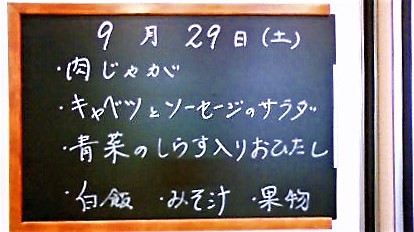 9月29日(土)
・肉じゃが
・キャベツとソーセージのサラダ
・青菜のしらす入りおひたし
・白飯 ・みそ汁 ・果物